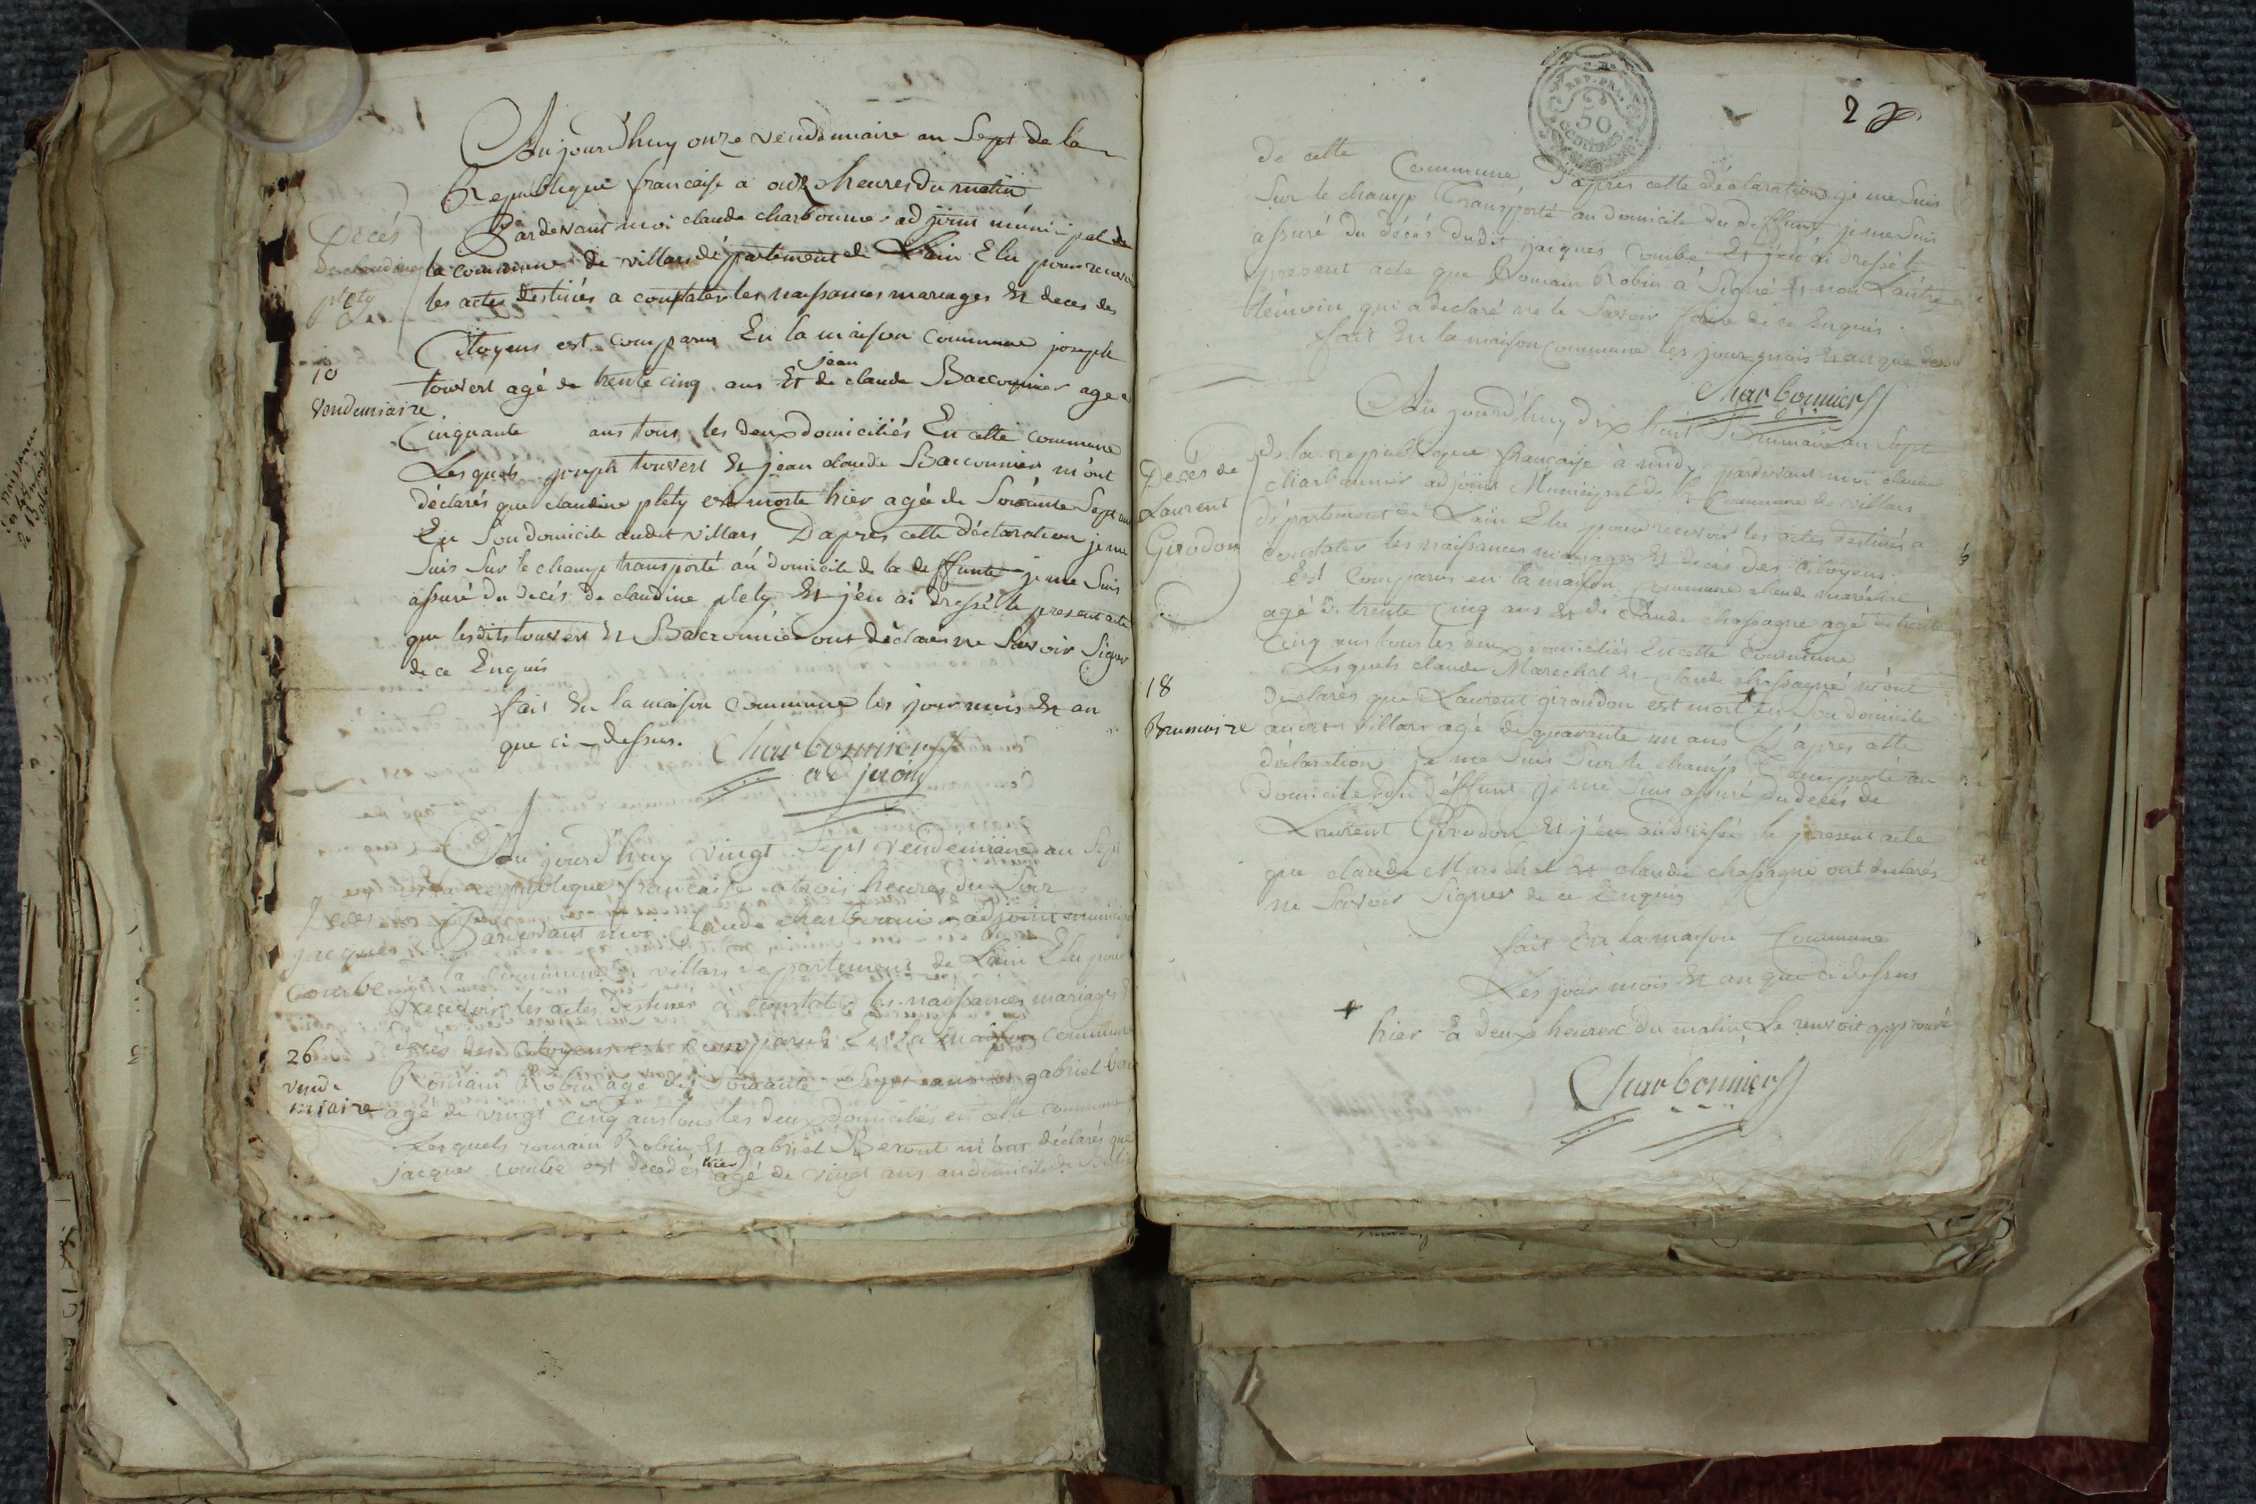 Aujourd'huy onze vendemiaire an Sept de la
Republique francaise a onze heures du matin
Pardevant moi claude charbonnier adjoint municipal de
la commune de villars département de L'ain Elu pour recevoir
les actes destinés a constater les naissances mariages Et deces des
Citoyens est comparus En la maison Commune joseph
touvert agé de trente cinq ans Et de jean claude Bacconnier age
Cinquante ans tous les deux domiciliés En cette commune
Lesquels joseph touvert Et jean claude Bacconnier m'ont
déclarés que claudine plety est morte hier agée de Soixante Sept ans
En Son domicile audit villars D'après cette déclaration je me
Suis Sur le champ transporté au domicile de la deffunte je me Suis
assuré du decés de claudine plety Et j'en ai dressé le present acte
que lesdits touvert Et Bacconnier ont déclarés ne Savoir Signer
de ce Enquis
fait En la maison commune les jour mois Et an
que ci-dessus.
Charbonnier
adjoint
Décés
De claudine
plety
10
Vendemiaire
Aujourd'huy vingt Sept vendémiaire an Sept
de la republique francaise a trois heures du Soir
Pardevant moi claude charbonnier adjoint municipal
de la commune de villars departement de L'ain Elu pour
recevoir les actes destinés a constater les naissances mariages Et
deces des citoyens est comparus En la maison commune
Romain Robin agé de Soixante Sept ans Et gabriel
agé de vingt cinq ans tous les deux domiciliés en cette commune
Lesquels romain Robin Et gabriel m'ont déclarés que
jacques combe est decedés hier agé de vingt ans au domicile de
Décés
jacques
Combe
26
vende
miaire
2
de cette Commune D'apres cette déclaration je me Suis
Sur le champ Transporté au domicile du deffunt je me Suis
assuré du décés dudit jacques combe Et j'en ai dressé le
present acte que Romain Robin a Signé Et non L'autre
témoin qui a declaré ne le Savoir faire de ce Enquis.
fait En la maison commune les jour mois Et an que dessus
Charbonnier
Aujourd'huy dix huit Brumaire an Sept
de la republique francaise à midy pardevant moi claude
charbonnier adjoint Municipal de la Commune de villars
département de L'ain Elu pour recevoir les actes destinés a
constater les naissances mariages Et decés des citoyens.
Est comparus en la maison commune claude marechal
agé de trente Cinq ans Et de Claude chassagne agé de trente
Cinq ans tous les deux domiciliés En cette Commune
Lesquels claude Marechal Et claude chassagne m'ont
declarés que Laurent giraudon est mort + En Son domicile
audit villars agé de quarante un ans D'après cette
déclaration je me Suis Sur le champ Transporté au
domicile du déffunt je me Suis assuré du decés de
Laurent Girodon Et j'en ai dressé le present acte
que claude Marechal Et claude chassagne ont declarés
ne Savoir Signer de ce Enquis
fait En la maison Commune
Les jour mois Et an que ci dessus
+ hier à deux heures du matin Le renvoit approuvé
Charbonnier
Décés de
Laurent
Girodon
18
Brumaire